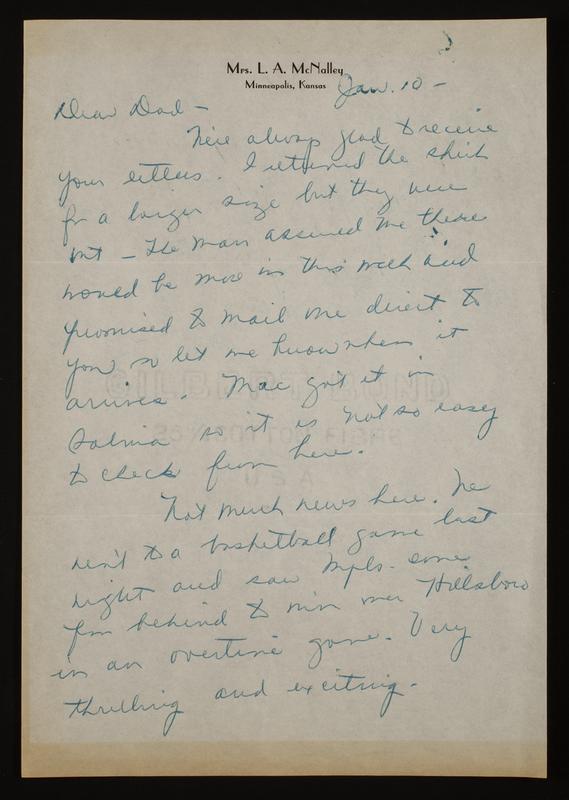 Mrs. L. A. McNalley
Minneapolis, Kansas
Jan. 10 -
Dear Dad -
We're always glad to receive
your letters. I returned the shirt
for a larger size but they were
out - The man assured me there
would be more in this week and
promised to mail one direct to
you so let me know when it
arrives. Mac got it in
Salina so it is not so easy
to check from here.
Not much news here. We
went to a basketball game last
night and saw Mpls. come
from behind to win over Hillsboro
in an overtime game. Very
thrilling and exciting.
GILBERT BOND
25% COTTON FIBER
U S A